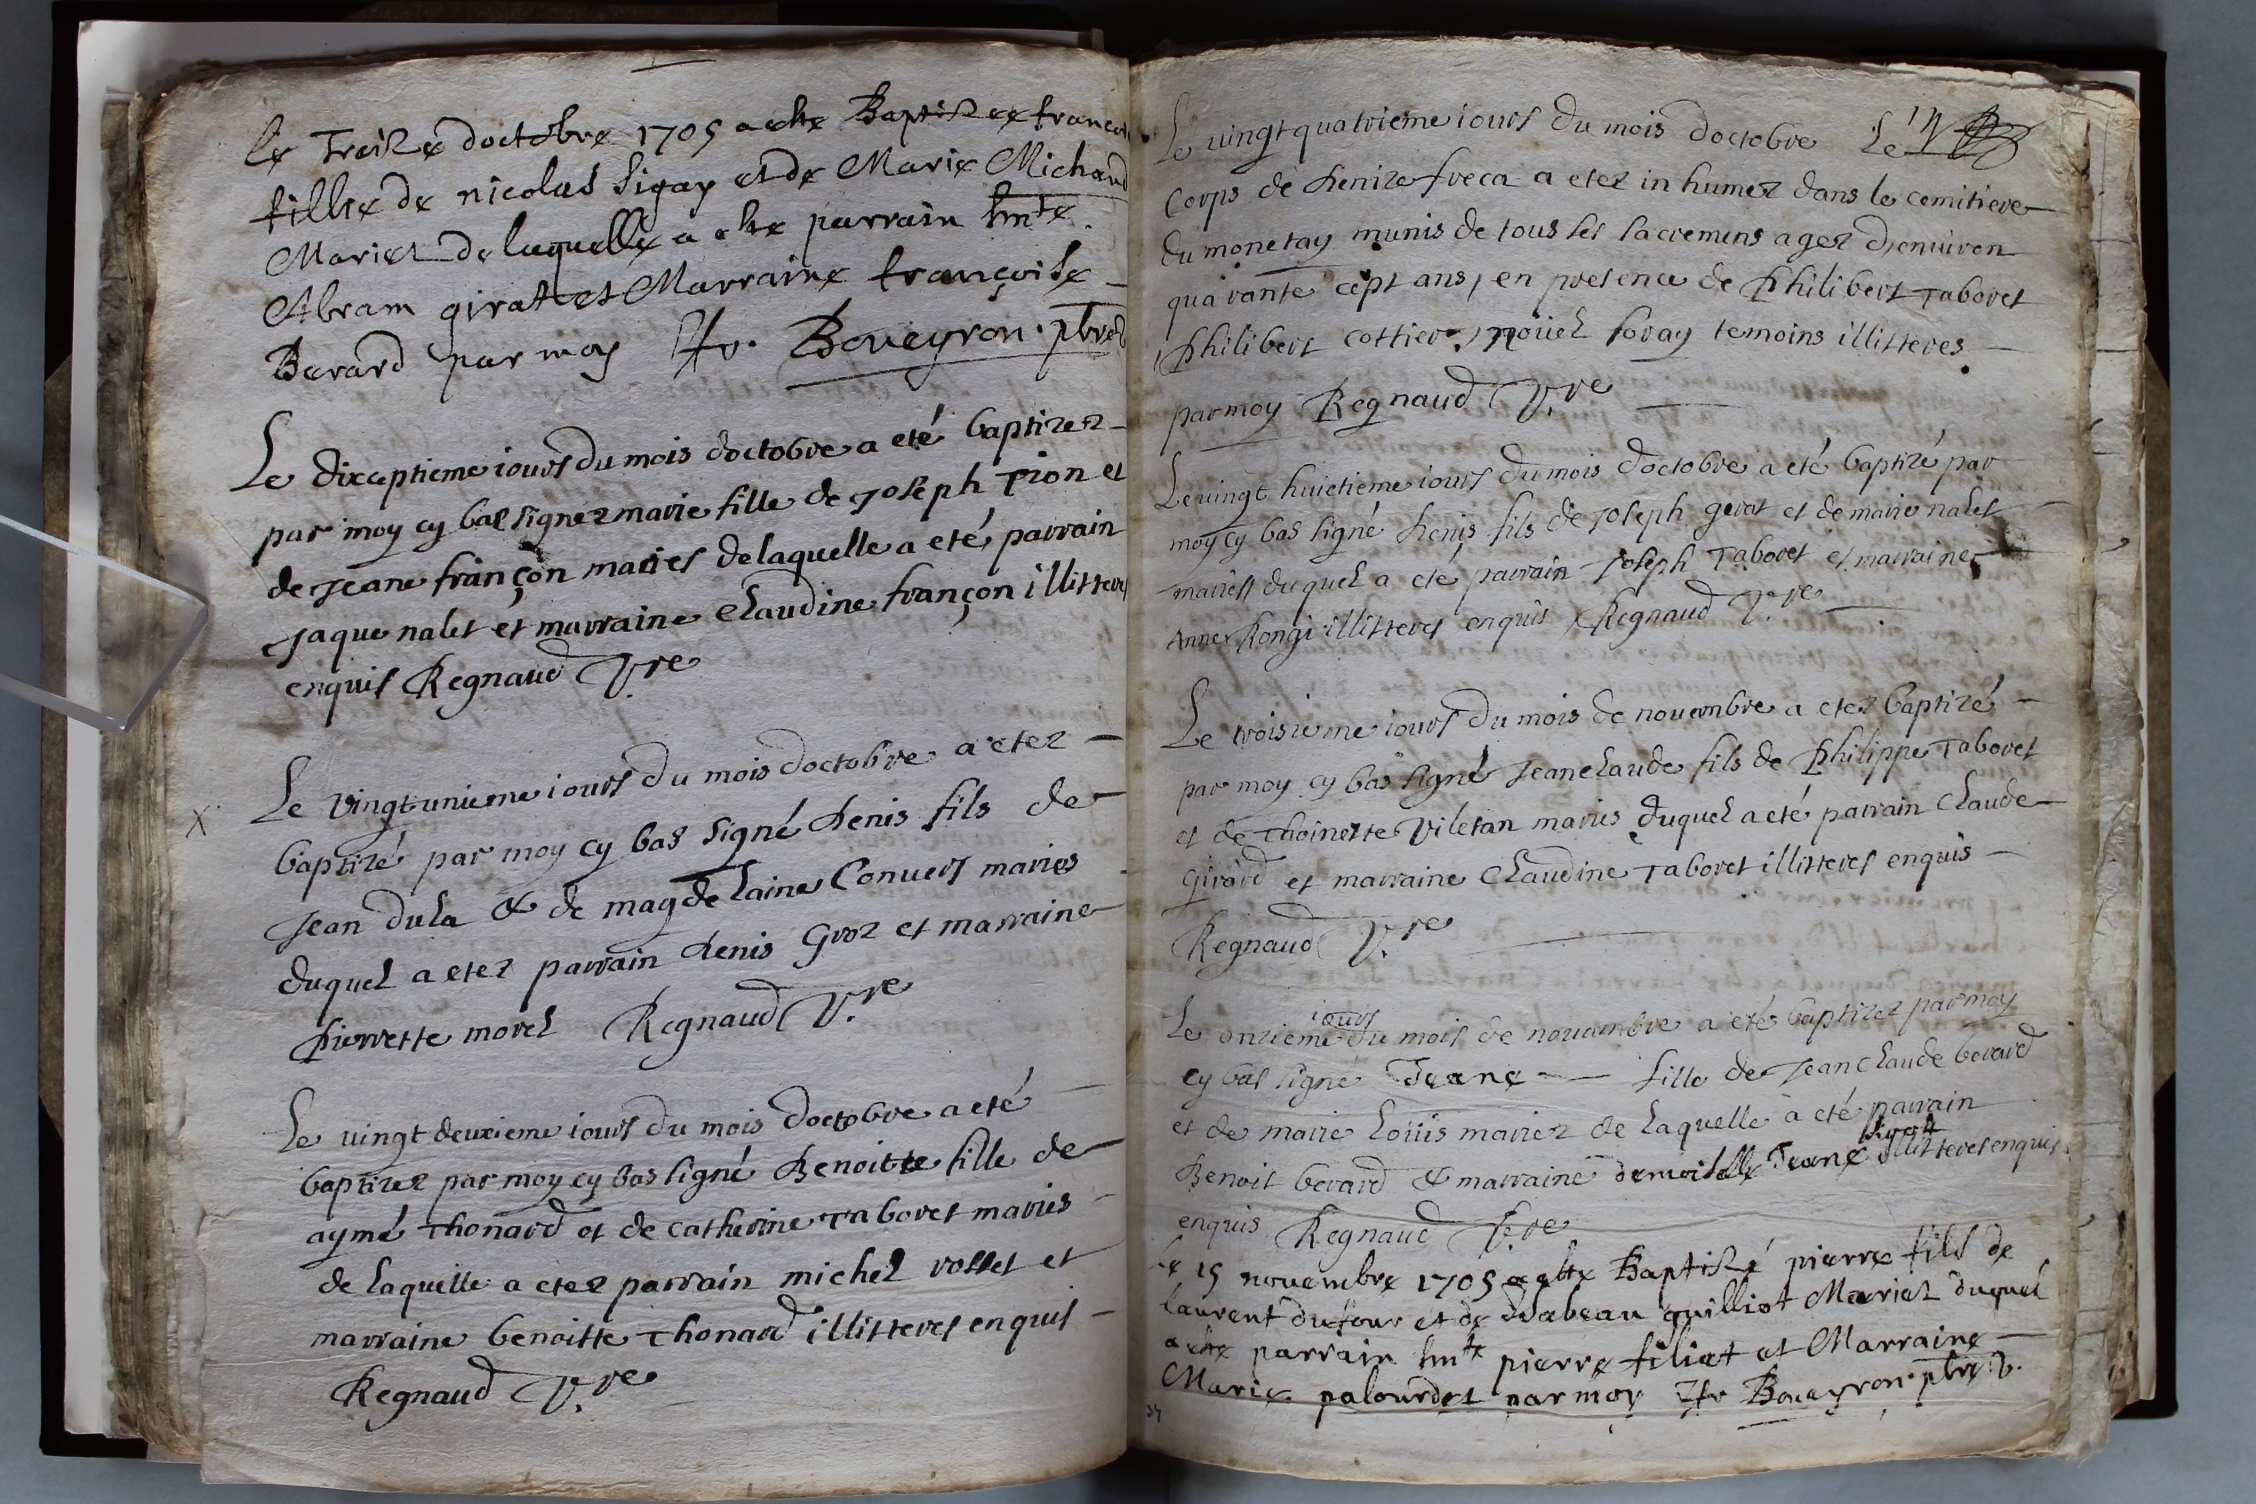 Le Treize d'octobre 1705 a este Baptizee francoi
fillie de nicolas Sigay et de Marie Michaud
Mariez de laquelle a este parrain hnte
Abram girat et Marraine françoise
Berard par moy Boueyron. pbre
Le dixceptieme iours du mois doctobre a eté baptizez
par moy cy bas signez marie fille de Joseph Pion et
de Jeane françon maries de laquelle a eté parrain
Jaque nalet et marraine Claudine françon illitteres
enquis Regnaud V.re
Le vingtunieme iours du mois doctobre a etez
X
baptizé par moy cy bas signé denis fils de
Jean dula & de magdelaine Convers maries
duquel a etez parrain denis Groz et marraine
pierrette morel Regnaud V.re
Le vingt deuxieme iours du mois doctobre a eté
baptizez par moy cy bas signé Benoitte fille de
aymé Thonard et de Catherine Taboret maries
de laquelle a etez parrain michel rosset et
marraine benoitte Thonard illitteres enquis
Regnaud V.re
Le vingtquatrieme iours du mois doctobre Le
Corps de denize freca a etez in humez dans le cemitiere
du monetay munis de tous ses sacremens agez denuiron
quarante cept ans, en presence de Philibert Taboret
Philibert cottier, nouel foray temoins illitteres
par moy Regnaud V.re
Le vingt huictieme iours du mois doctobre a eté baptizé par
moy cy bas signé denis fils de Joseph gerat et de marie nalet
maries duquel a eté parrain Joseph Taboret et marraine
Anne Rongi illitteres enquis Regnaud V.re
Le troisieme iours du mois de nouembre a etez baptizé
par moy cy bas signé Jeanclaude fils de Philippe Taboret
et de Thoinette Viletan maries duquel a eté parrain Claude
Girard et marraine Claudine Taboret illitteres enquis
Regnaud V.re
Le onzieme iours du mois de nouembre a eté baptizez par moy
cy bas signé Jeane fille de Jean Claude berard
et de marie Loüis mariez de laquelle a eté parrain
Benoit berard & marraine demoiselle Jeane illitteres enquis
enquis Regnaud V.re
Le 15 nouembre 1705 a este Baptizé pierre fils de
laurent dufour et de Isabeau guilliot Mariez duquel
a este parrain hnte pierre filiat et Marraine
Marie palourdet par moy Boueyron. pbre. v.